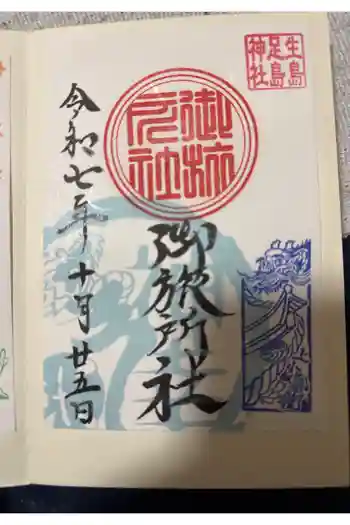 生島
足島
神社
御旅所社
令和七年十月廿五日